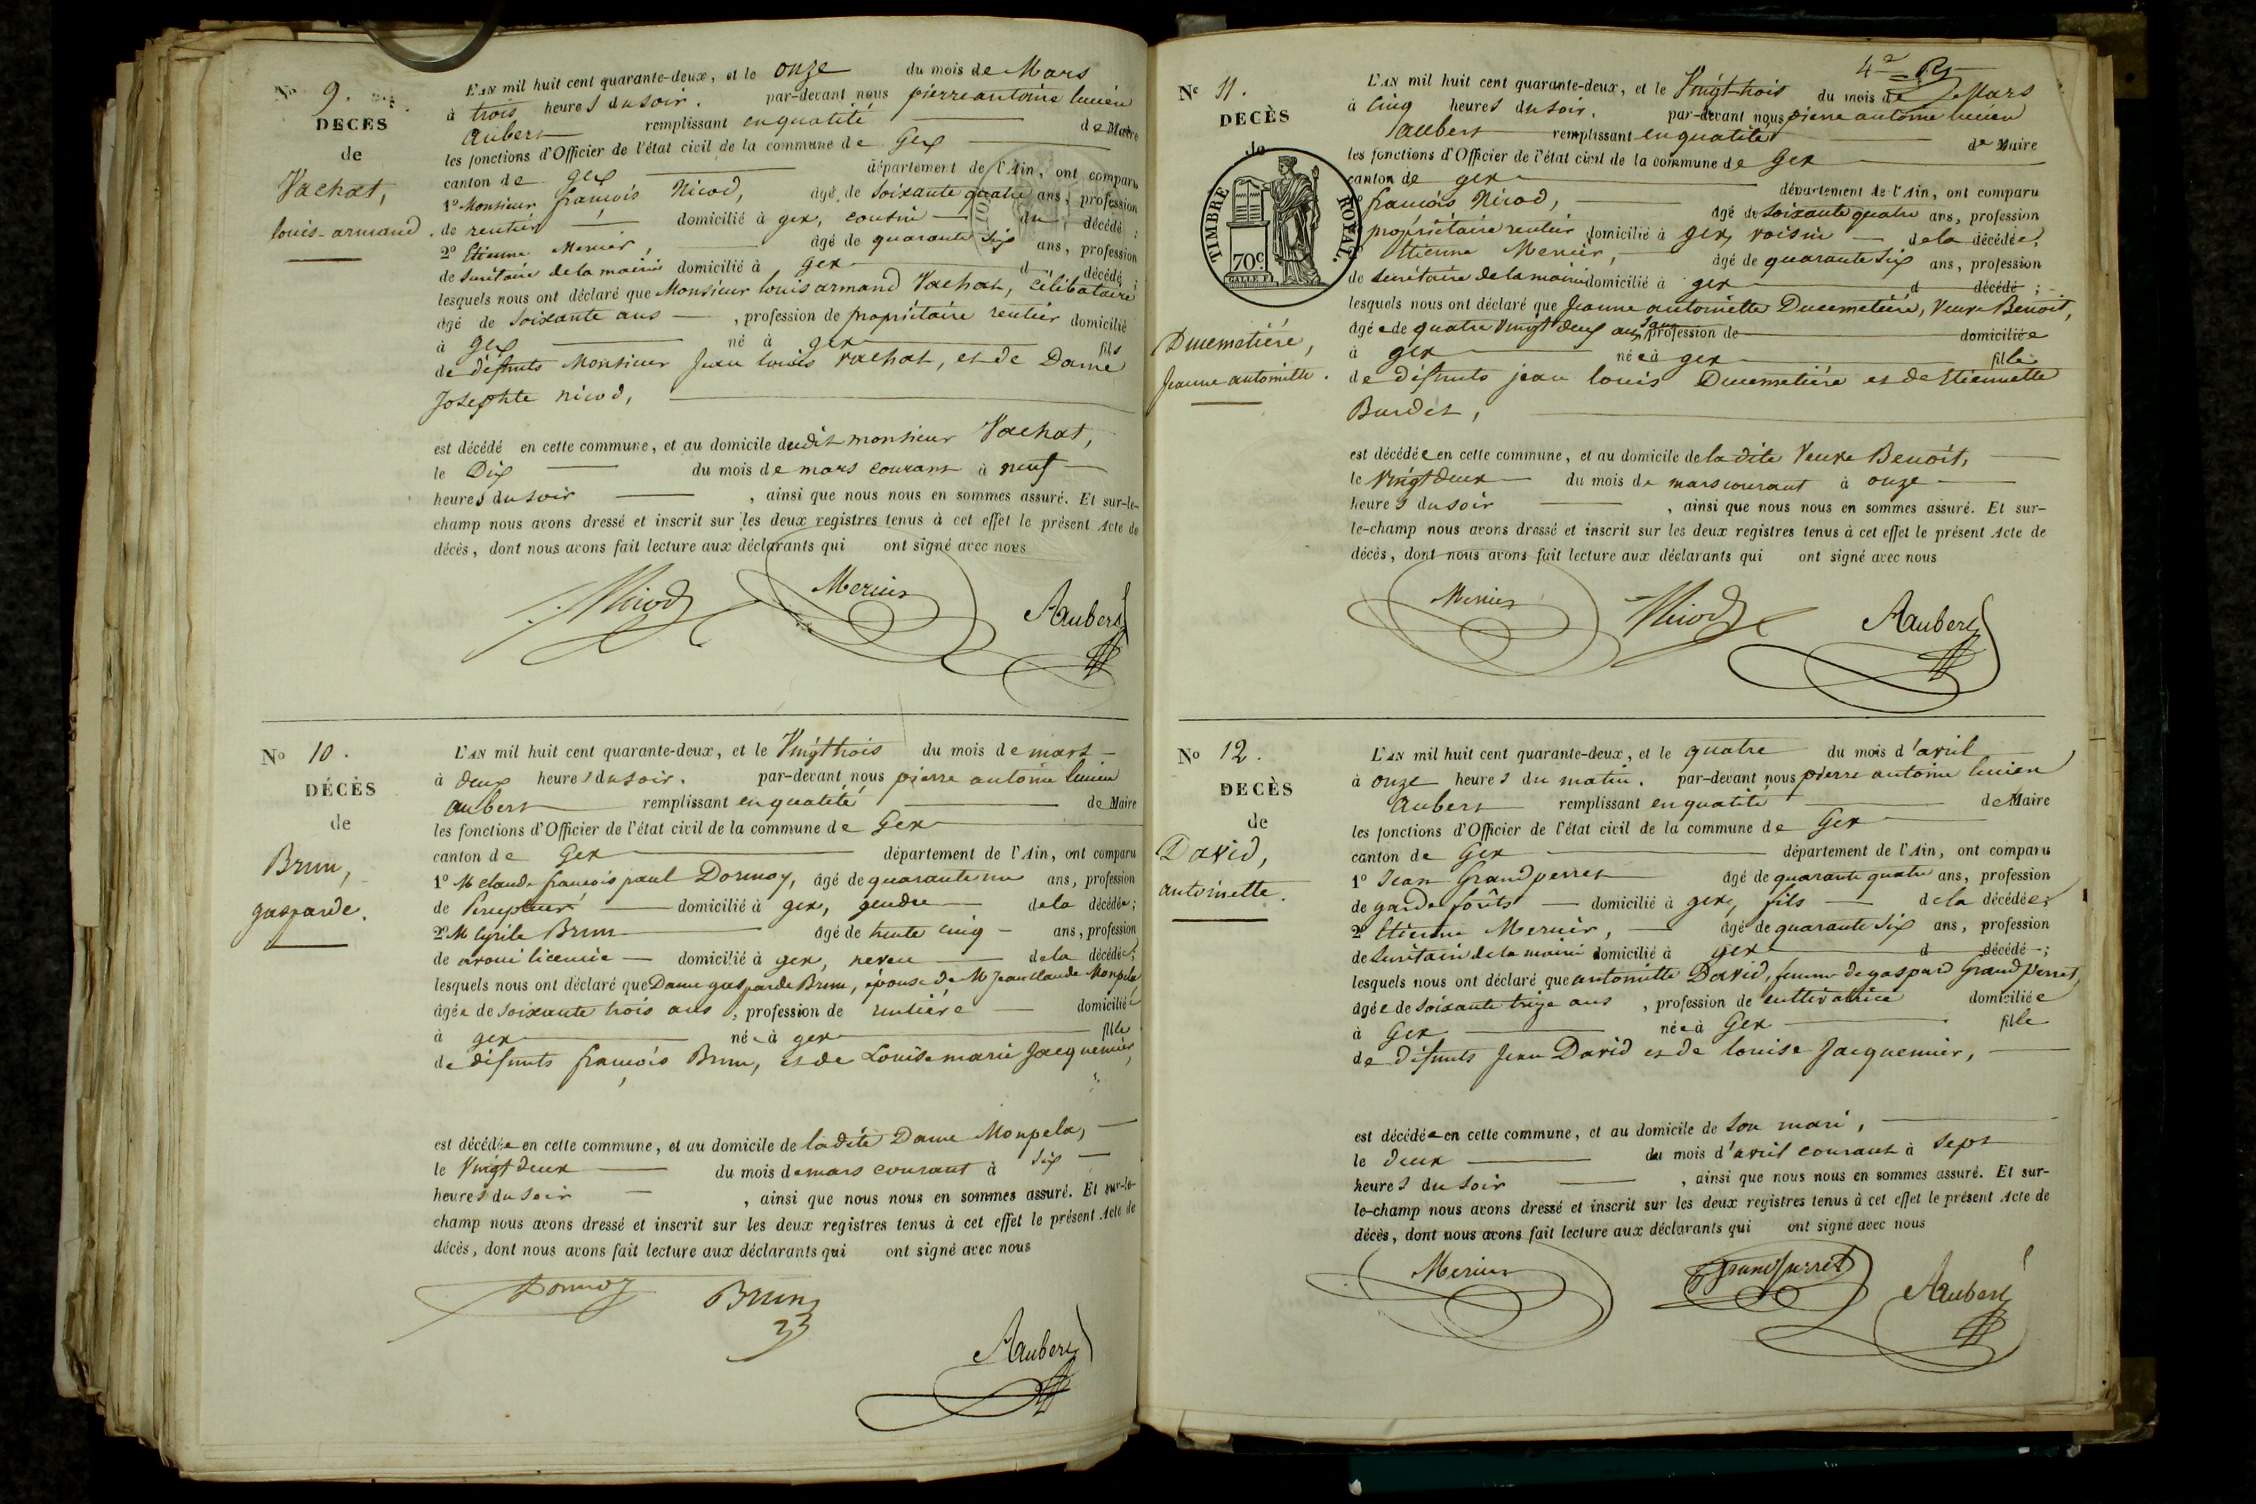 No 9.
DÉCÈS
de
Vachat,
louis-armand.
L'AN mil huit cent quarante-deux, et le onze du mois de Mars
à trois heures du soir. par-devant nous pierre antoine lucien
Aubert remplissant en qualité de Maire
les fonctions d'Officier de l'état civil de la commune de Gex
canton de gex département de l'Ain, ont comparu
1º Monsieur françois Nicod, âgé de soixante quatre ans, profession
de rentier domicilié à gex, cousin du décédé ;
2º Etienne Mercier, âgé de quarante six ans, profession
de secrétaire de la mairie domicilié à gex d décédé ;
lesquels nous ont déclaré que Monsieur louis armand Vachat, célibataire
âgé de soixante ans , profession de propriétaire rentier domicilié
à gex né à gex fils
de défunts Monsieur Jean louis Vachat, et de Dame
Josephte nicod,
est décédé en cette commune, et au domicile dudit monsieur Vachat,
le Dix du mois de mars courant à neuf
heures du soir , ainsi que nous nous en sommes assuré. Et sur-le-
champ nous avons dressé et inscrit sur les deux registres tenus à cet effet le présent Acte de
décès, dont nous avons fait lecture aux déclarants qui ont signé avec nous
Nicod Mercier Aubert
No 10.
DÉCÈS
de
Brun,
gasparde.
L'AN mil huit cent quarante-deux, et le Vingt trois du mois de mars
à deux heures du soir. par-devant nous pierre antoine lucien
Aubert remplissant en qualité de Maire
les fonctions d'Officier de l'état civil de la commune de Gex
canton de Gex département de l'Ain, ont comparu
1º M claude françois paul Dormoy, âgé de quarante un ans, profession
de Percepteur domicilié à gex, gendre de la décédée ;
2º M Cyrile Brun âgé de trente cinq ans, profession
de avoué licencié domicilié à gex, neveu de la décédée ;
lesquels nous ont déclaré que Dame gasparde Brun, épouse de M Jean claude Monpela,
âgée de soixante trois ans , profession de rentière domiciliée
à gex née à gex fille
de défunts françois Brun, et de Louise marie Jacquemier,
est décédée en cette commune, et au domicile de la dite Dame Monpela,
le Vingt deux du mois de mars courant à six
heures du soir , ainsi que nous nous en sommes assuré. Et sur-le-
champ nous avons dressé et inscrit sur les deux registres tenus à cet effet le présent Acte de
décès, dont nous avons fait lecture aux déclarants qui ont signé avec nous
Dormoy Brun
Aubert
No 11.
DÉCÈS
de
TIMBRE ROYAL.
70c
Ducemetière,
Jeanne antoinette.
L'AN mil huit cent quarante-deux, et le Vingt trois du mois de Mars
à Cinq heures du soir. par-devant nous pierre antoine lucien
Aubert remplissant en qualité de Maire
les fonctions d'Officier de l'état civil de la commune de Gex
canton de gex département de l'Ain, ont comparu
françois Nicod, âgé de soixante quatre ans, profession
propriétaire rentier domicilié à gex, voisin de la décédée ;
Etienne Mercier, âgé de quarante six ans, profession
de secrétaire de la mairie domicilié à gex d décédé ;
lesquels nous ont déclaré que Jeanne antoinette Ducemetière, Veuve Benoit,
âgée de quatre Vingt deux ans, sans profession de domiciliée
à gex née à gex fille
de défunts jean louis Ducemetière et de Etiennette
Burdet,
est décédée en cette commune, et au domicile de la dite Veuve Benoit,
le Vingt deux du mois de mars courant à onze
heures du soir , ainsi que nous nous en sommes assuré. Et sur-
le-champ nous avons dressé et inscrit sur les deux registres tenus à cet effet le présent Acte de
décès, dont nous avons fait lecture aux déclarants qui ont signé avec nous
Mercier Nicod Aubert
No 12.
DÉCÈS
de
David,
antoinette.
L'AN mil huit cent quarante-deux, et le quatre du mois d'avril
à onze heures du matin. par-devant nous pierre antoine lucien
Aubert remplissant en qualité de Maire
les fonctions d'Officier de l'état civil de la commune de Gex
canton de Gex département de l'Ain, ont comparu
1º Jean Grandperret âgé de quarante quatre ans, profession
de garde forêts domicilié à gex, fils de la décédée ;
2º Etienne Mercier, âgé de quarante six ans, profession
de secrétaire de la mairie domicilié à gex d décédé ;
lesquels nous ont déclaré que antoinette David, femme de gaspard Grandperret,
âgée de soixante treize ans , profession de cultivatrice domiciliée
à Gex née à Gex fille
de défunts Jean David et de louise Jacquemier,
est décédée en cette commune, et au domicile de son mari,
le deux du mois d'avril courant à sept
heures du soir , ainsi que nous nous en sommes assuré. Et sur-
le-champ nous avons dressé et inscrit sur les deux registres tenus à cet effet le présent Acte de
décès, dont nous avons fait lecture aux déclarants qui ont signé avec nous
Mercier Grandperret Aubert